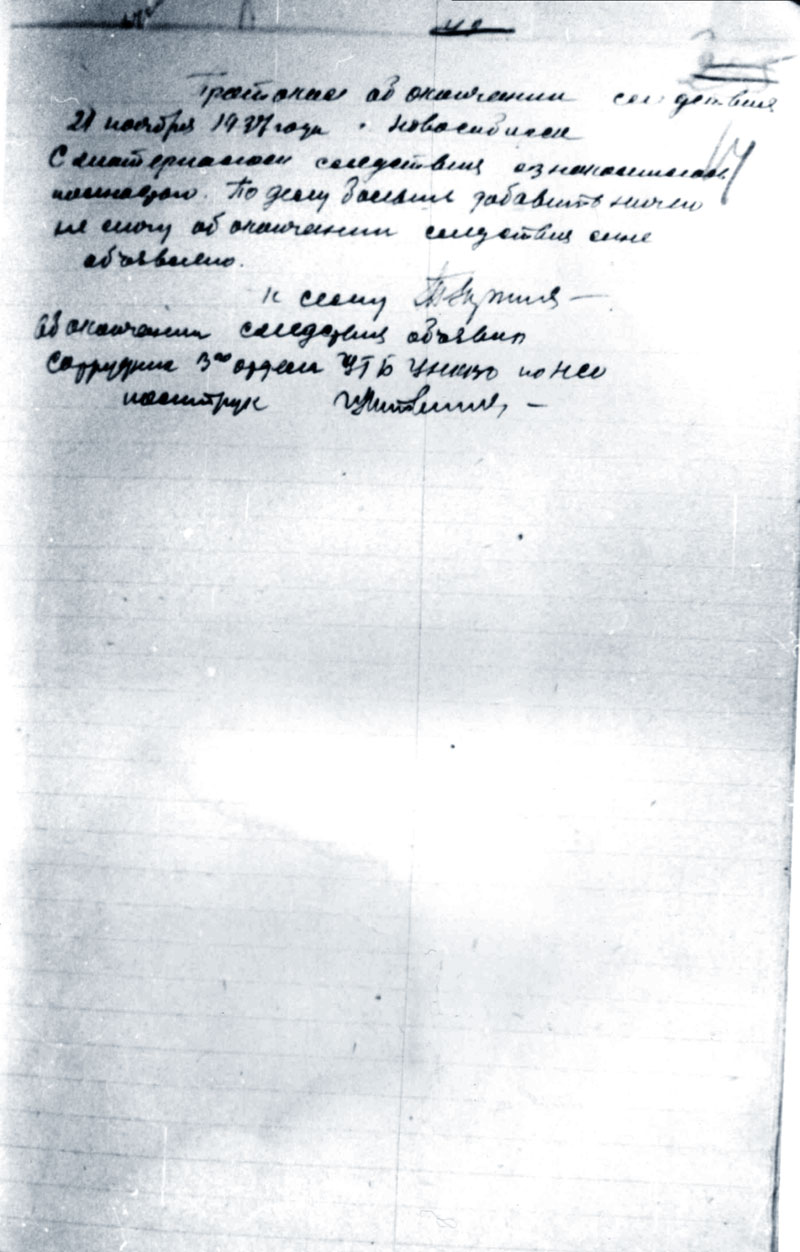 Протокол об окончании следствия
21 ноября 1937 года г. Новосибирск
С материалом следствия ознакомился
полностью. По делу больше добавить ничего
не могу об окончании следствия мне
объявлено.
К сему
Об окончании следствия объявил
Сотрудник 3го отдела УГБ УНКВД по НСО